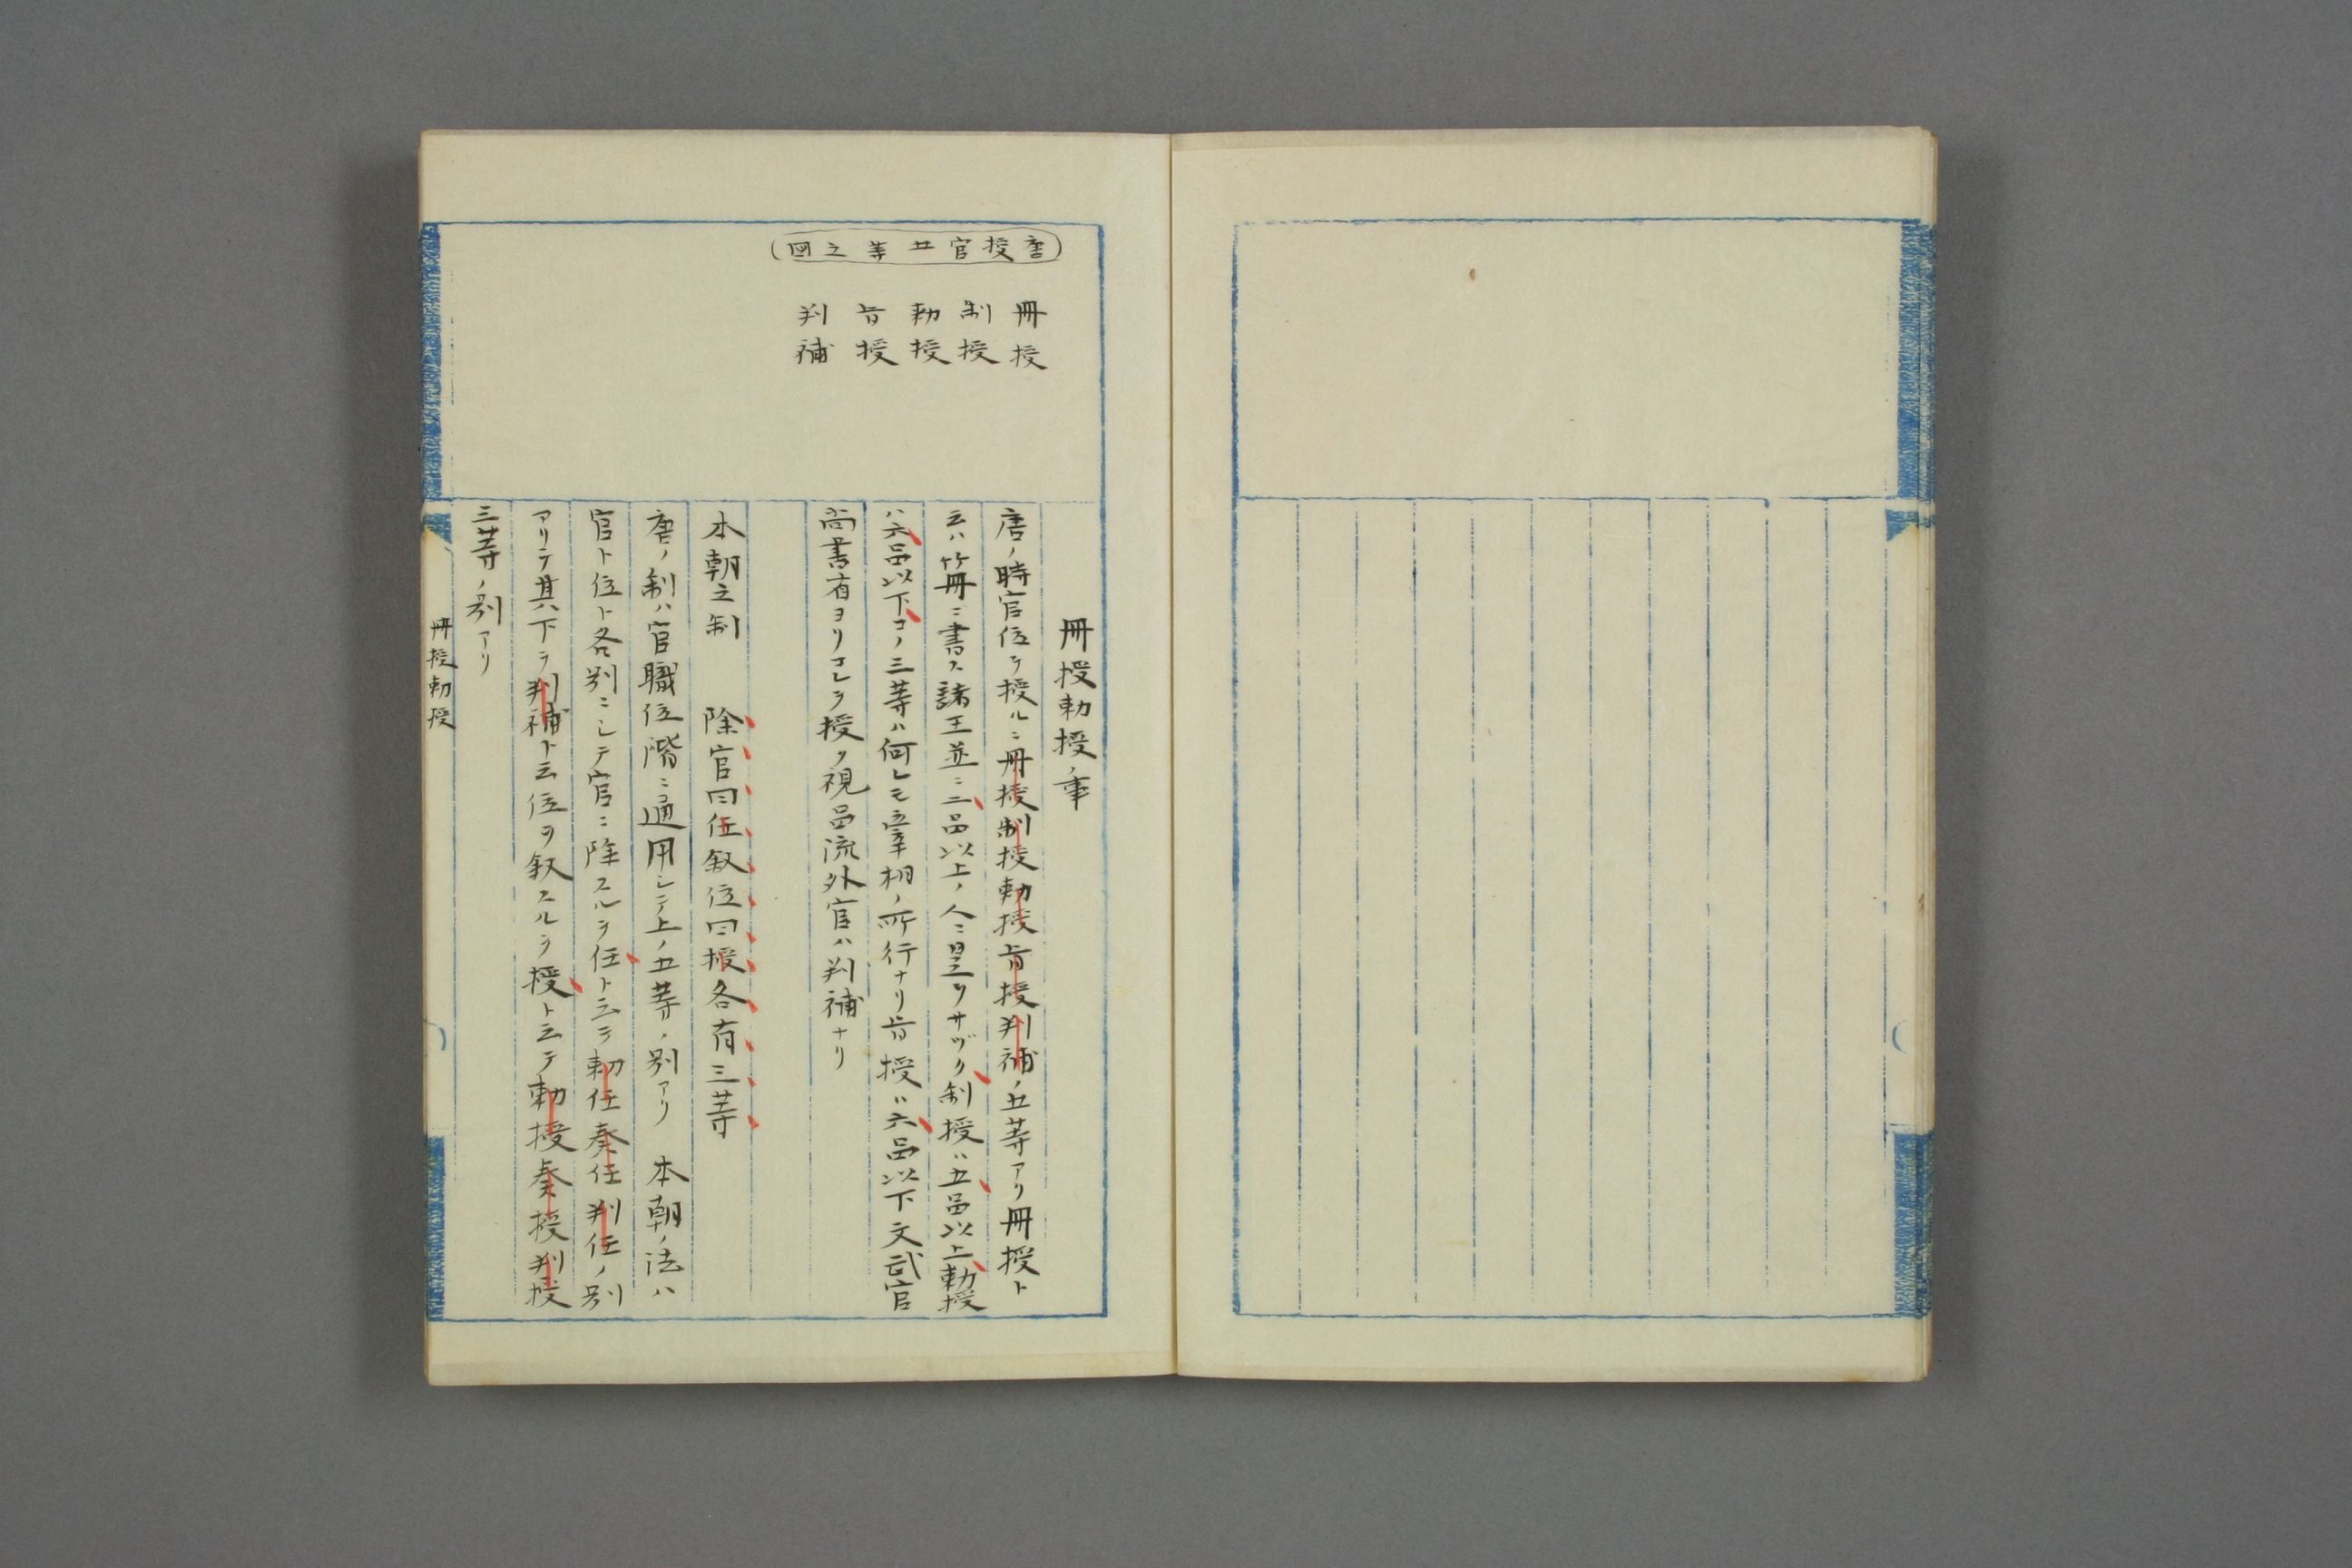 唐授官五等之図
冊授
制授
勅授
旨授
判補
冊授勅授ノ事
唐ノ時官位ヲ授ルニ冊授制授勅授旨授判補ノ五等アリ冊授ト
云ハ竹冊ニ書ス諸王並ニ二品以上ノ人ニ是ヲサヅク制授ハ五品以上勅授
ハ六品以下コノ三等ハ何レモ宰相ノ所行ナリ旨授ハ六品以下文武官
尚書省ヨリコレヲ授ク視品流外官ハ判補ナリ
本朝之制 除官曰任叙位曰授各有三等
唐ノ制ハ官職位階ニ通用シテ上ノ五等ノ別アリ 本朝ノ法ハ
官ト位ト各別ニシテ官ニ除スルヲ任ト云テ勅任奏任判任ノ別
アリテ其ハ下ヲ判補ト云位ヲ叙スルヲ授ト云テ勅授奏授判授
三等ノ別アリ
冊授勅授